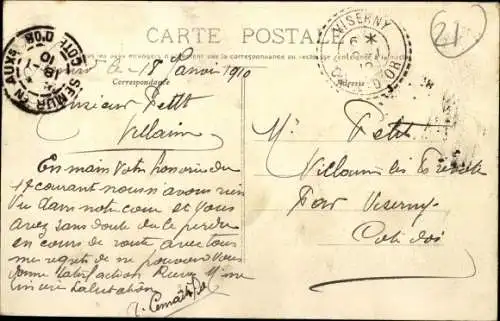 CARTE POSTALE
la correspondance au recto
Correspondance
Adresse
SEMUR EN AUXOIS
COTE D'OR
VISERNY
COTE D'OR
21
le 18 Janvier 1910
Monsieur Petit
Villaine
En main Votre honorée du
17 courant nous n'avons rien
Vu dans notre cour et Vous
avez sans doute du le perdre
en cours de route, avec tous
mes regrets de ne pouvoir Vous
donner Satisfaction Recevez Mr
Sincère Salutation
Mr Petit
Villaines les Prévotes
Par Viserny
Cote dor